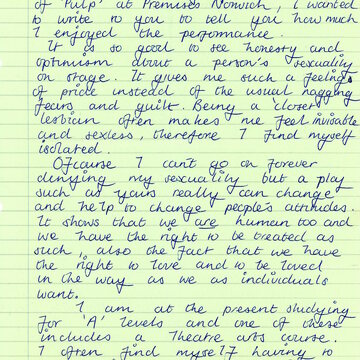 of 'Pulp' at Premises Norwich, I wanted
to write to you to tell you how much
I enjoyed the performance.
It is so good to see honesty and
optimism about a person's sexuality
on stage. It gives me such a feeling
of pride instead of the usual nagging
fears and guilt. Being a 'closet'
lesbian often makes me feel invisable
and sexless, therefore I find myself
isolated.
Ofcourse I can't go on forever
denying my sexuality but a play
such as yours really can change
and help to change people's attitudes.
It shows that we are human too and
we have the right to be treated as
such, also the fact that we have
the right to love and to be loved
in the way as we as individuals
want.
I am at the present studying
for 'A' levels and one of these
includes a Theatre arts course.
I often find myself having to